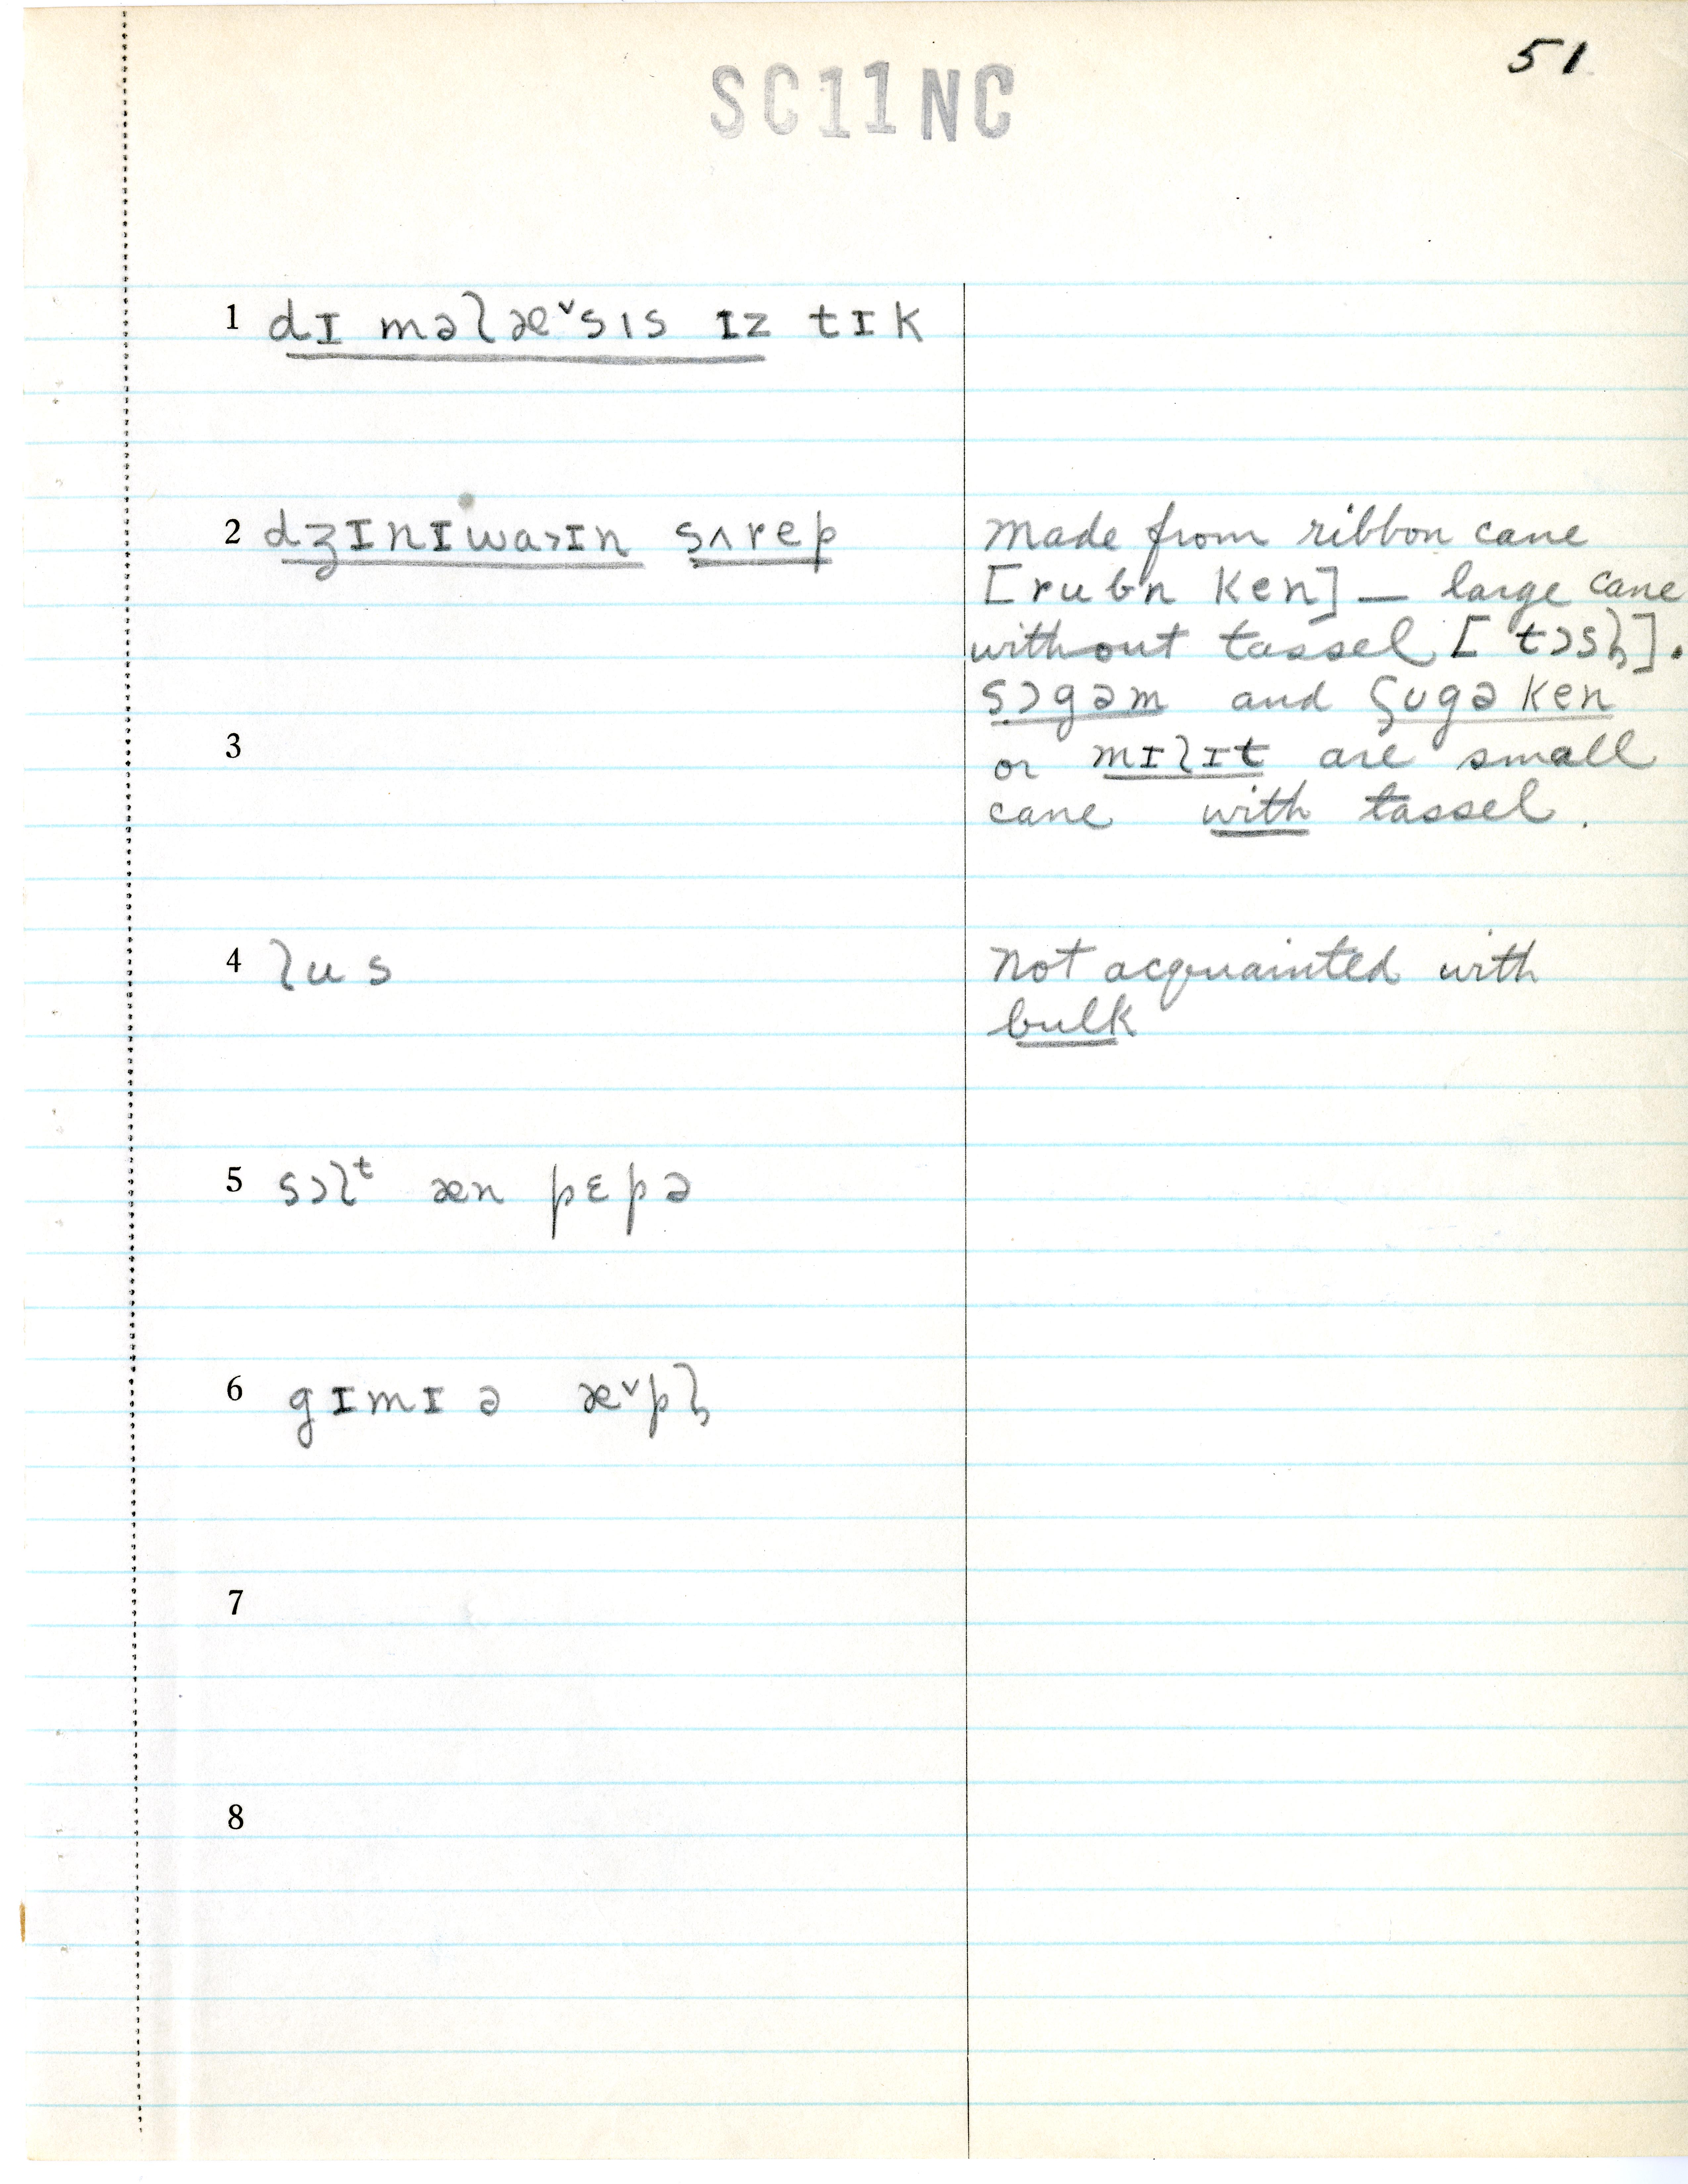 51
SC11NC
1 dɪ məlæ˅sɪs ɪz tɪk
2 dʒɪnɪwa>ɪn sʌrep
made from ribbon cane
[rubn ken] — large cane
without tassel [tɔsl̩].
sɔgəm and ʃugə ken
3
or mɪlɪt are small
cane with tassel.
4 lus
not acquainted with
bulk
5 sɔlᵗ æn pɛpə
6 gɪmɪ ə æ˅pl̩
7
8